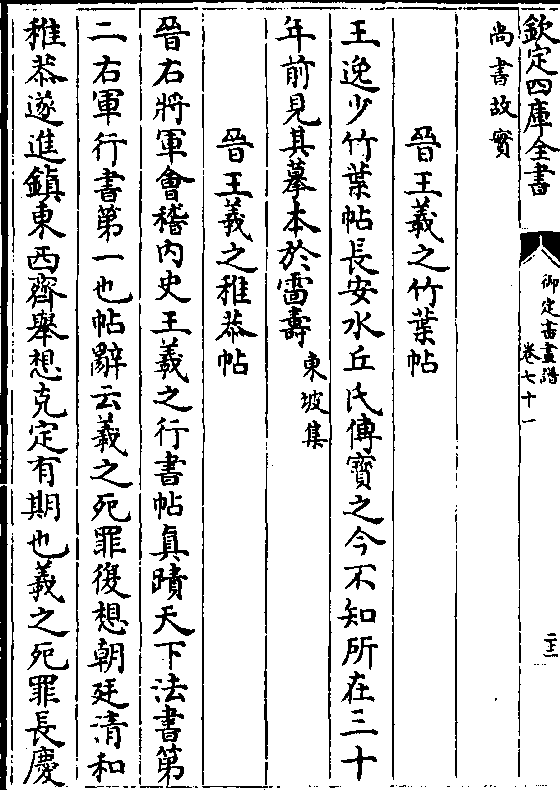 欽定四庫全書
御定書畫譜
卷七十一
二十二
尚書故實
晉王羲之竹葉帖
王逸少竹葉帖長安水丘氏傳寶之今不知所在三十
年前見其摹本於雷壽東坡集
晉王羲之稚恭帖
晉右將軍會稽內史王羲之行書帖真蹟天下法書第
二右軍行書第一也帖辭云羲之死罪復想朝廷清和
稚恭遂進鎮東西齊舉想克定有期也羲之死罪長慶